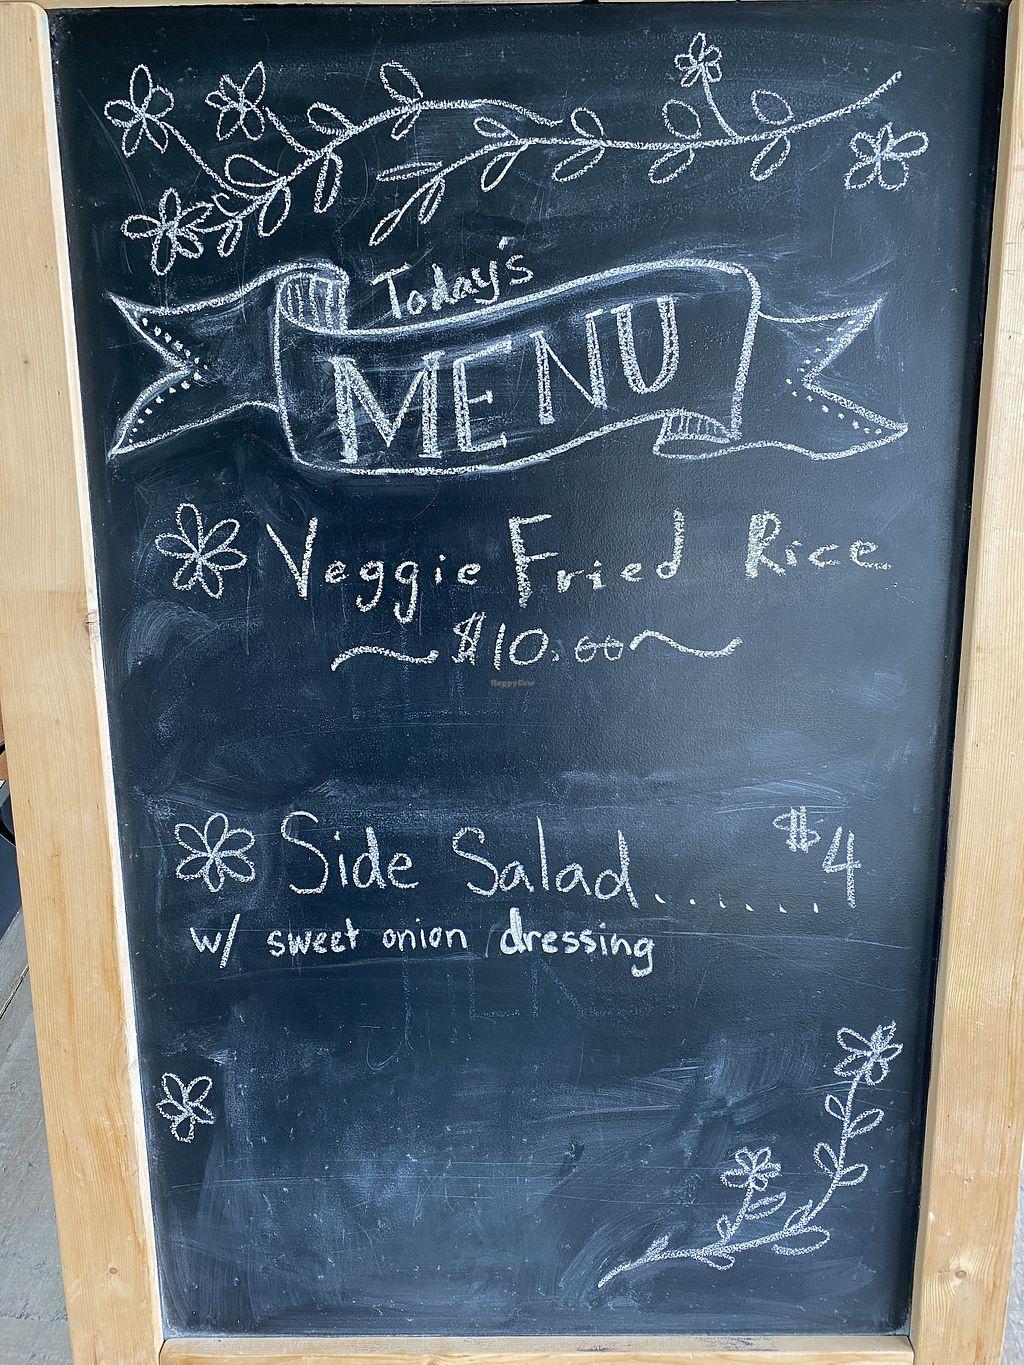 Today's
MENU
Veggie Fried Rice
~$10.00~
HappyCow
Side Salad....... $4
w/ sweet onion dressing